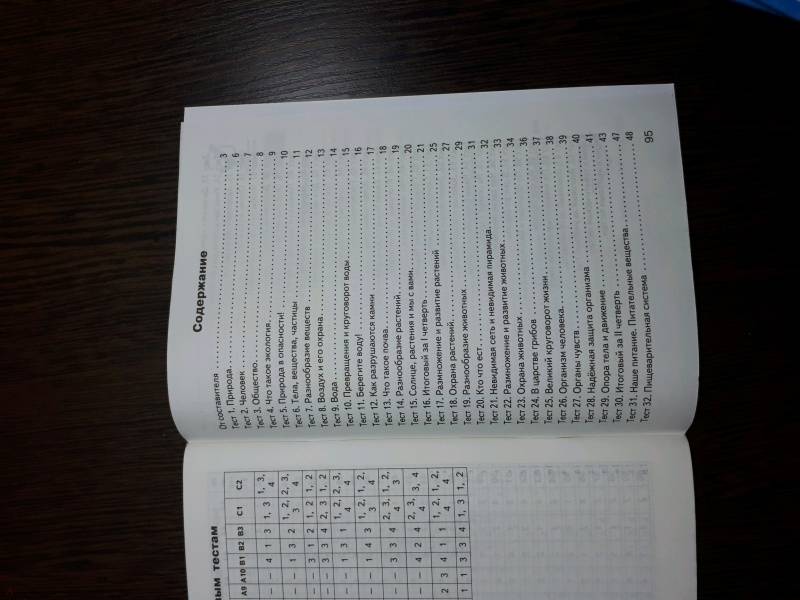 вым тестам
А9 А10 В1 В2 В3 С1 С2
– – 4 1 3 1, 3 1, 3,
4
– – 1 3 2 1, 2, 2, 3,
3 4
– – 3 1 2 1, 2 1, 2
– – 3 3 4 2, 3 1, 2
– – 1 3 1 1, 2, 2, 3,
4 4
– – 1 4 3 1, 2, 1, 2,
3 4
– – 3 3 4 2, 3, 1, 2,
4 3
– – 4 2 4 2, 3, 3, 4
4
2 3 4 1 1 1, 2, 1, 2,
4 4
1 1 3 3 4 1, 3 1, 2
Содержание
От составителя 3
Тест 1. Природа 6
Тест 2. Человек 7
Тест 3. Общество 8
Тест 4. Что такое экология 9
Тест 5. Природа в опасности! 10
Тест 6. Тела, вещества, частицы 11
Тест 7. Разнообразие веществ 12
Тест 8. Воздух и его охрана 13
Тест 9. Вода 14
Тест 10. Превращения и круговорот воды 15
Тест 11. Берегите воду! 16
Тест 12. Как разрушаются камни 17
Тест 13. Что такое почва 18
Тест 14. Разнообразие растений 19
Тест 15. Солнце, растения и мы с вами 20
Тест 16. Итоговый за I четверть 21
Тест 17. Размножение и развитие растений 25
Тест 18. Охрана растений 27
Тест 19. Разнообразие животных 29
Тест 20. Кто что ест 31
Тест 21. Невидимая сеть и невидимая пирамида 32
Тест 22. Размножение и развитие животных 33
Тест 23. Охрана животных 34
Тест 24. В царстве грибов 36
Тест 25. Великий круговорот жизни 37
Тест 26. Организм человека 38
Тест 27. Органы чувств 39
Тест 28. Надёжная защита организма 40
Тест 29. Опора тела и движение 41
Тест 30. Итоговый за II четверть 43
Тест 31. Наше питание. Питательные вещества 47
Тест 32. Пищеварительная система 48
95